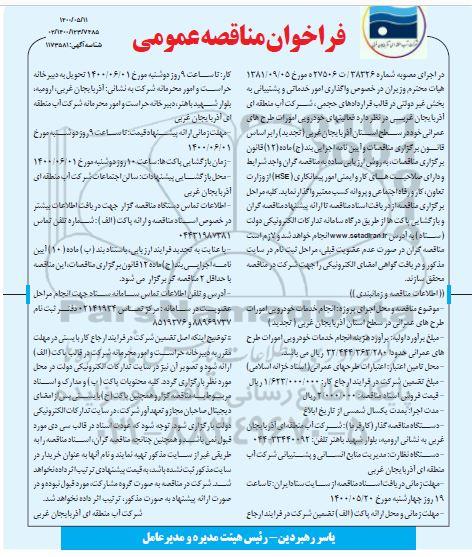 ۱۴۰۰/۰۵/۱۱
۰۲/۱۴۰۰/۱۲۳/۷۴۸۵
شناسه آگهی: ۱۱۷۳۵۸۱
فراخوان مناقصه عمومی
در اجرای مصوبه شماره ۳۸۳۲۶/ت ۲۷۵۰۶ ه مورخ ۱۳۸۱/۰۹/۰۵
هیات محترم وزیران در خصوص واگذاری امور خدماتی و پشتیبانی به
بخش غیر دولتی در قالب قراردادهای حجمی، شرکت آب منطقه ای
آذربایجان غربی در نظر دارد فعالیتهای خودرویی امورات طرح های
عمرانی خود در سطح استان آذربایجان غربی (تجدید) را بر اساس
قانون برگزاری مناقصات و آیین نامه اجرایی بند (ج) ماده (۱۲) قانون
برگزاری مناقصات، به روش ارزیابی ساده به مناقصه گران واجد شرایط
و دارای صلاحیت های کار و ایمنی امور پیمانکاری (HSE) از وزارت
تعاون، کار و رفاه اجتماعی و پروانه کسب معتبر واگذار نماید. کلیه مراحل
برگزاری مناقصه از دریافت اسناد مناقصه تا ارائه پیشنهاد مناقصه گران
و بازگشایی پاکت ها از طریق درگاه سامانه تدارکات الکترونیکی دولت
(ستاد) به آدرس www.setadiran.ir انجام خواهد شد و لازم است
مناقصه گران در صورت عدم عضویت قبلی، مراحل ثبت نام در سایت
مذکور و دریافت گواهی امضای الکترونیکی را جهت شرکت در مناقصه
محقق سازند.
((اطلاعات مناقصه و زمانبندی))
- موضوع مناقصه و محل اجرای پروژه: انجام خدمات خودرویی امورات
طرح های عمرانی در سطح استان آذربایجان غربی (تجدید)
- مبلغ برآورد اولیه: برآورد هزینه انجام خدمات خودرویی امورات طرح
های عمرانی حدوداً ۳۲/۴۴۴/۳۶۲/۲۸۰ ریال می باشد.
- محل تامین اعتبار: اعتبارات طرحهای عمرانی (اسناد خزانه اسلامی)
- مبلغ تضمین شرکت در فرایند ارجاع کار: ۱/۶۲۳/۰۰۰/۰۰۰ ریال
- قیمت فروش اسناد مناقصه: ۲/۰۰۰/۰۰۰ ریال
- مدت اجرا: بمدت یکسال شمسی از تاریخ ابلاغ
- دستگاه مناقصه گذار (کارفرما): شرکت آب منطقه ای آذربایجان
غربی به نشانی ارومیه، بلوار شهید باهنر تلفن: ۰۴۴-۳۳۴۴۰۰۹۲
- دستگاه نظارت: مدیریت منابع انسانی و پشتیبانی شرکت آب
منطقه ای آذربایجان غربی
- مهلت زمانی دریافت اسناد مناقصه از سایت ستاد ایران: تا ساعت
۱۹ روز چهارشنبه مورخ ۱۴۰۰/۰۵/۲۰
- مهلت زمانی و محل ارائه پاکت (الف) تضمین شرکت در فرایند ارجاع
کار: تا ساعت ۹ روز دوشنبه مورخ ۱۴۰۰/۰۶/۰۱ تحویل به دبیرخانه
حراست و امور محرمانه شرکت به نشانی: آذربایجان غربی، ارومیه،
بلوار شهید باهنر، دبیرخانه حراست و امور محرمانه شرکت آب منطقه
ای آذربایجان غربی
- مهلت زمانی ارائه پیشنهاد قیمت: تا ساعت ۹ روز دوشنبه مورخ
۱۴۰۰/۰۶/۰۱
- زمان بازگشایی پاکت ها: ساعت ۱۰ روز دوشنبه مورخ ۱۴۰۰/۰۶/۰۱
- محل بازگشایی پیشنهادات: سالن اجتماعات شرکت آب منطقه ای
آذربایجان غربی
- اطلاعات تماس دستگاه مناقصه گزار جهت دریافت اطلاعات بیشتر
در خصوص اسناد مناقصه و ارائه پاکت (الف): شماره تلفن تماس
۰۴۴۳۱۹۸۷۳۸۱
- با عنایت به تجدید فرایند ارزیابی، باستناد بند (ب) ماده (۱۰) آیین
نامه اجرایی بند (ج) ماده ۱۲ قانون برگزاری مناقصات، این مناقصه
با حداقل ۲ مناقصه گر برگزار می شود.
- آدرس و تلفن اطلاعات تماس سامانه ستاد جهت انجام مراحل
عضویت در سامانه: مرکز تماس ۰۲۱۴۱۹۳۴ دفتر ثبت نام
۸۸۹۶۹۷۳۷ و ۸۵۱۹۳۷۶۸
* توضیح اینکه اصل تضمین شرکت در فرایند ارجاع کار بایستی در مهلت
مقرر به دبیرخانه حراست و امور محرمانه شرکت در قالب پاکت (الف)
ارائه شود و تصویر آن نیز در سایت تدارکات الکترونیکی دولت در محل
مورد نظر بارگزاری گردد. کلیه محتویات پاکت (ب) و مدارک و اسناد
مربوط به مناقصه گزار و همچنین پاکت (ج) بایستی پس از امضای
دیجیتال صاحبان مجاز و تعهدآور شرکت، در سایت تدارکات الکترونیکی
دولت بارگزاری شود. توجه شود که عودت اسناد در قالب سی دی مورد
قبول نمی باشد و همچنین چنانچه مناقصه گران، اسناد مناقصه را به
طریقی غیر از سایت مذکور تهیه نمایند و نام آنها به عنوان خریدار در
سایت مذکور ثبت نشده باشد، به قیمت پیشنهادی ترتیب اثر داده نخواهد
شد. شرکت در مناقصه به صورت گروه مشارکت، مورد قبول نبوده و در
صورت ارائه پیشنهاد به صورت مذکور، ترتیب اثر داده نخواهد شد.
شرکت آب منطقه ای آذربایجان غربی
یاسر رهبردین – رئیس هیئت مدیره و مدیرعامل